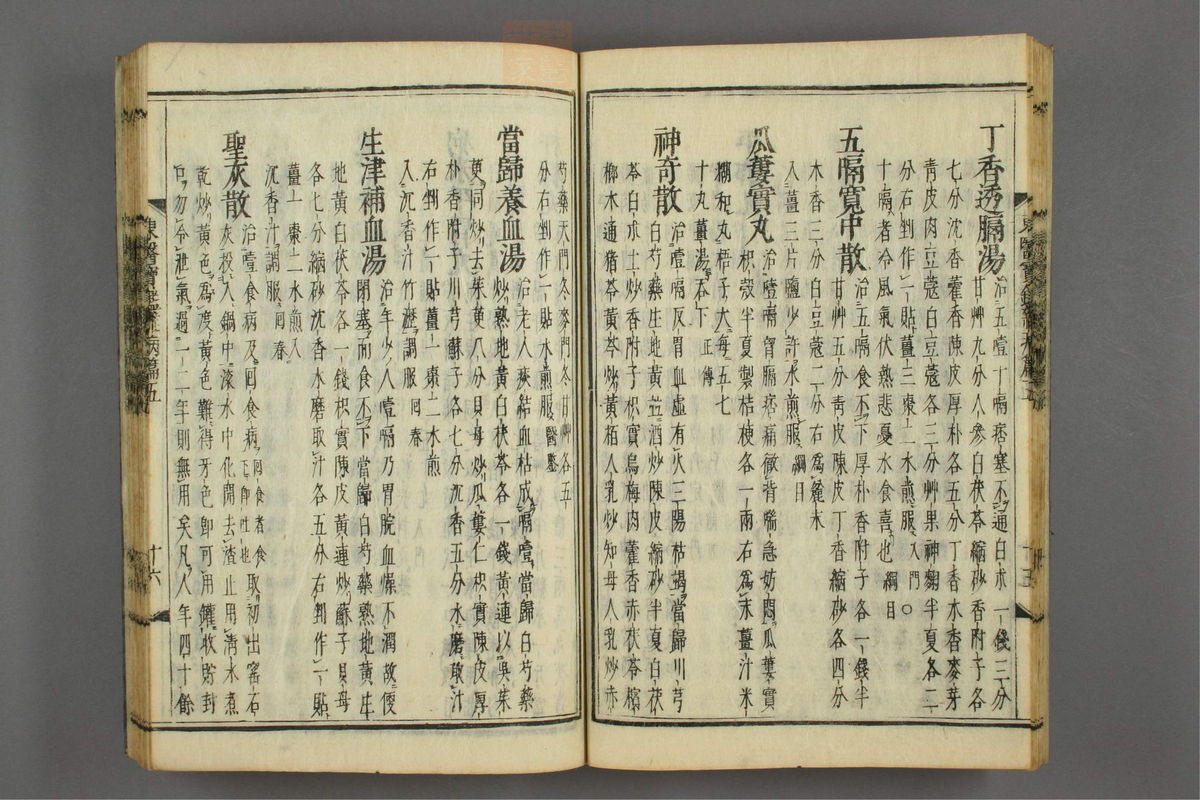 丁香透膈湯 治五噎十膈痞塞不通白朮一錢三分
甘艸九分人參白茯苓縮砂香附子各
七分沈香藿香陳皮厚朴各五分丁香木香麥芽
青皮肉豆蔻白豆蔻各三分艸果神麴半夏各二
分右剉作一貼薑三棗二水煎服入門○
十膈者冷風氣伏熱悲憂水食喜也綱目
五膈寬中散 治五膈食不下厚朴香附子各一錢半
甘艸五分青皮陳皮丁香縮砂各四分
木香三分白豆蔻二分右爲麄末
入薑三片鹽少許水煎服綱目
瓜蔞實丸 治噎膈胷膈痞痛徹背喘急妨悶瓜蔞實
枳殼半夏製桔梗各一兩右爲末薑汁米
糊和丸梧子大每五七
十丸薑湯吞下正傳
神奇散 治噎膈反胃血虛有火三陽枯竭當歸川芎
白芍藥生地黃並酒炒陳皮縮砂半夏白茯
苓白朮土炒香附子枳實烏梅肉藿香赤茯苓檳
榔木通猪苓黃芩炒黃栢人乳炒知母人乳炒赤
芍藥天門冬麥門冬甘艸各五
分右剉作一貼水煎服醫鑒
當歸養血湯 治老人痰結血枯成膈噎當歸白芍藥
炒熟地黃白茯苓各一錢黃連以吳茱
萸同炒去茱萸八分貝母炒瓜蔞仁枳實陳皮厚
朴香附子川芎蘇子各七分沉香五分水磨取汁
右剉作一貼薑一棗二水煎
入沉香汁竹瀝調服回春
生津補血湯 治年少人噎膈乃胃脘血燥不潤故便
閉塞而食不下當歸白芍藥熟地黃生
地黃白茯苓各一錢枳實陳皮黃連炒蘇子貝母
各七分縮砂沉香水磨取汁各五分右剉作一貼
薑一棗二水煎入
沉香汁調服回春
聖灰散 治噎食病及回食病回食者食下卽吐也取初出窰石
灰投入鍋中滚水中化開去渣止用淸水煮
乾炒黃色爲度黃色難得牙色卽可用鑵收貯封
口勿令泄氣過一二年則無用矣凡人年四十餘
東醫寶鑑雜病篇五
十五
東醫寶鑑雜病篇五
十六